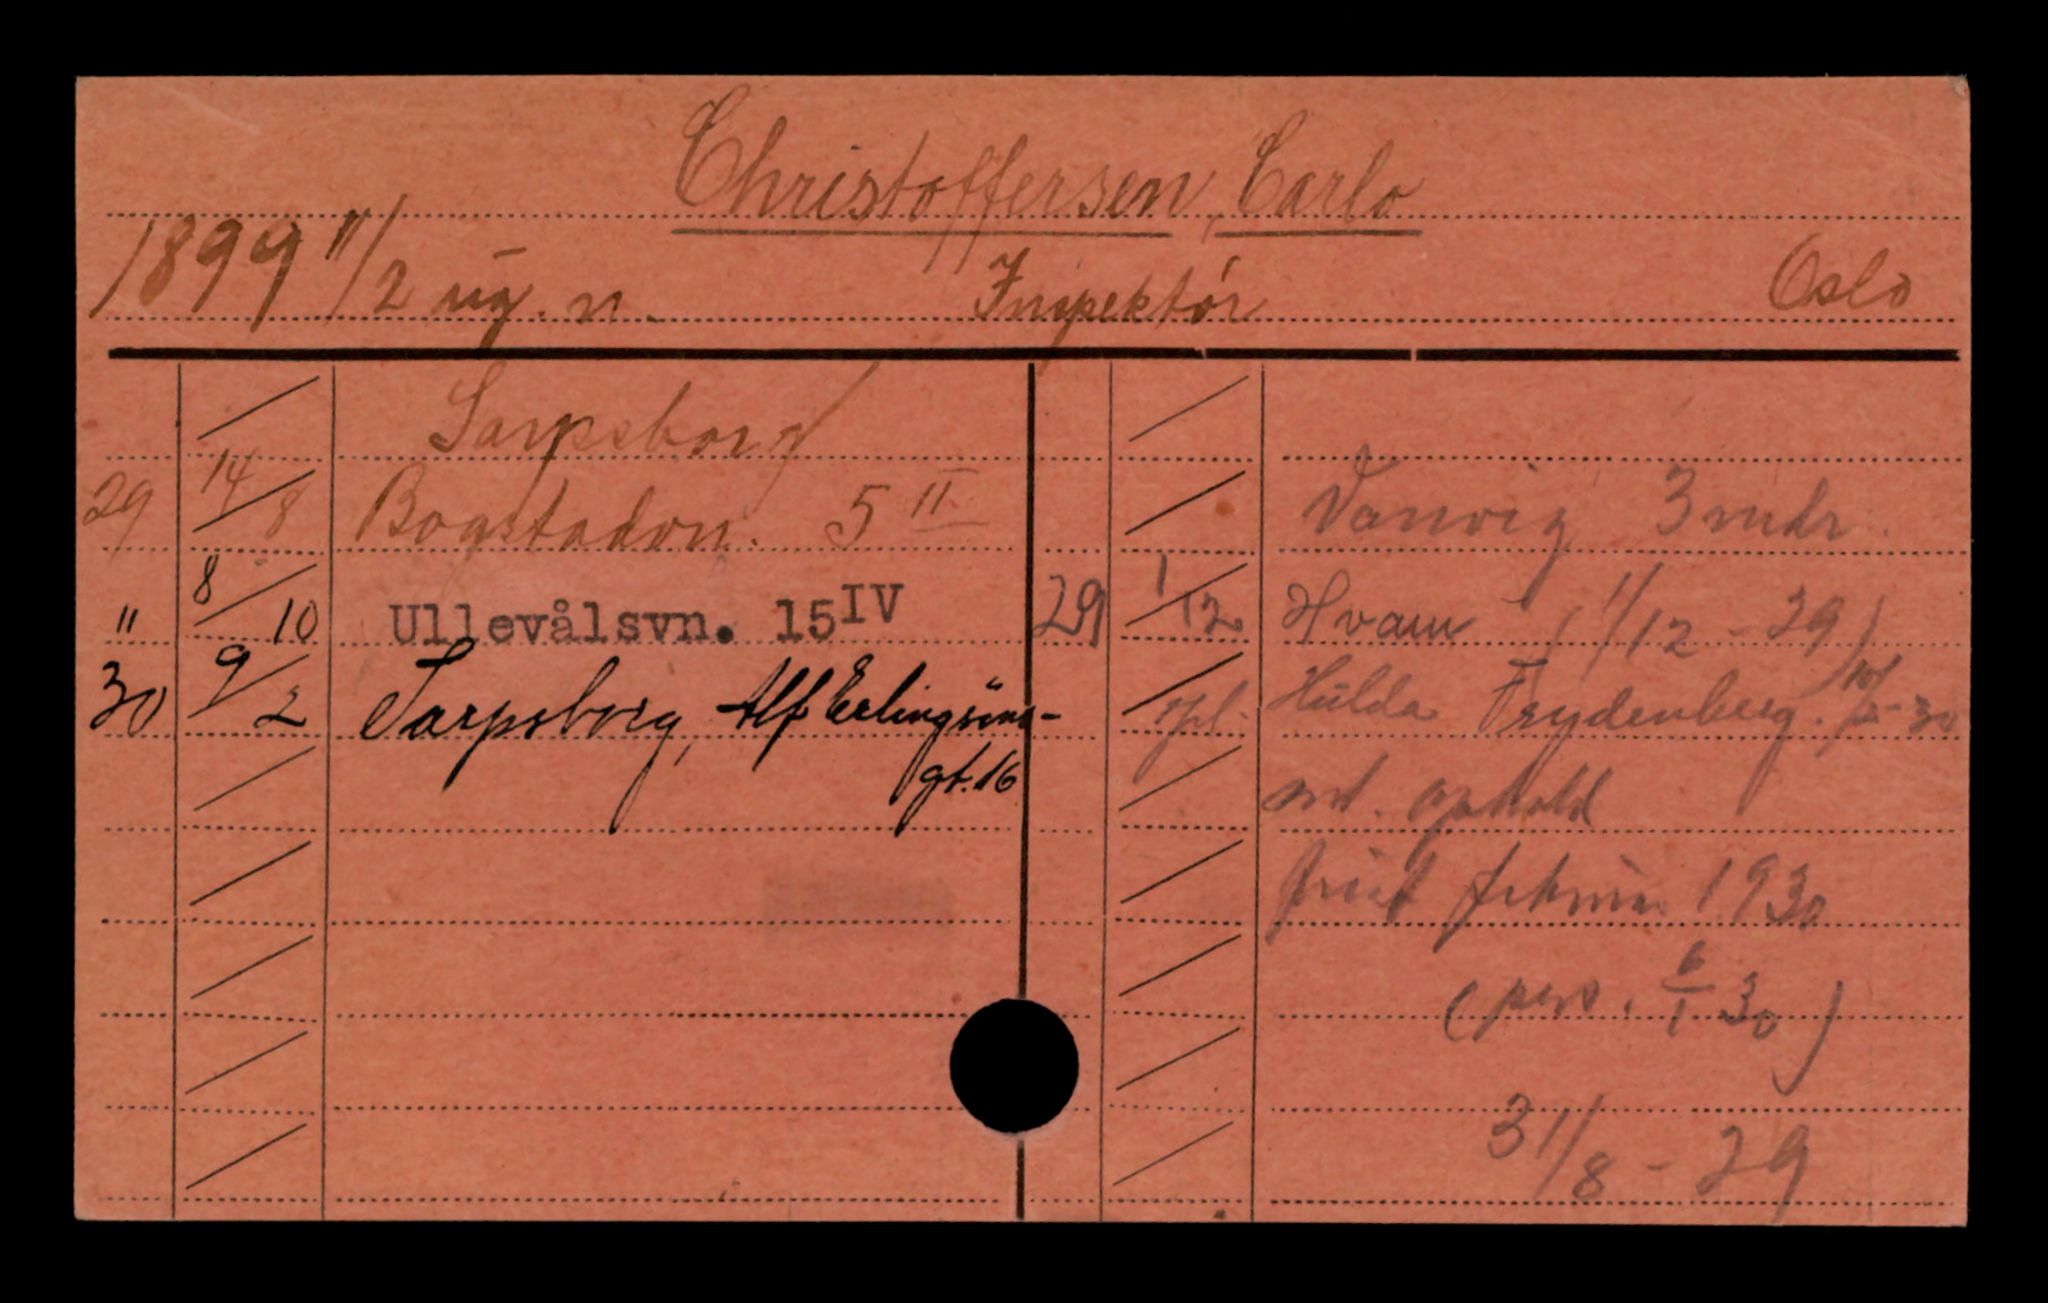 Christoffersen, Carlo
1899 11/2 ug. n. Inspektør Oslo
Sarpsborg
29 14/8 Bogstadvn. 5 II
Vanvig 3 mdr.
" 8/10 Ullevålsvn. 15 IV
29 1/12 Hvam (1/12 - 29)
30 9/2 Sarpsborg, Alf Erlingsöns-
gt. 16
Hulda Frydenberg. - 30
mt. ophold
februar 1930
(pers. 6/1 30)
31/8 - 29